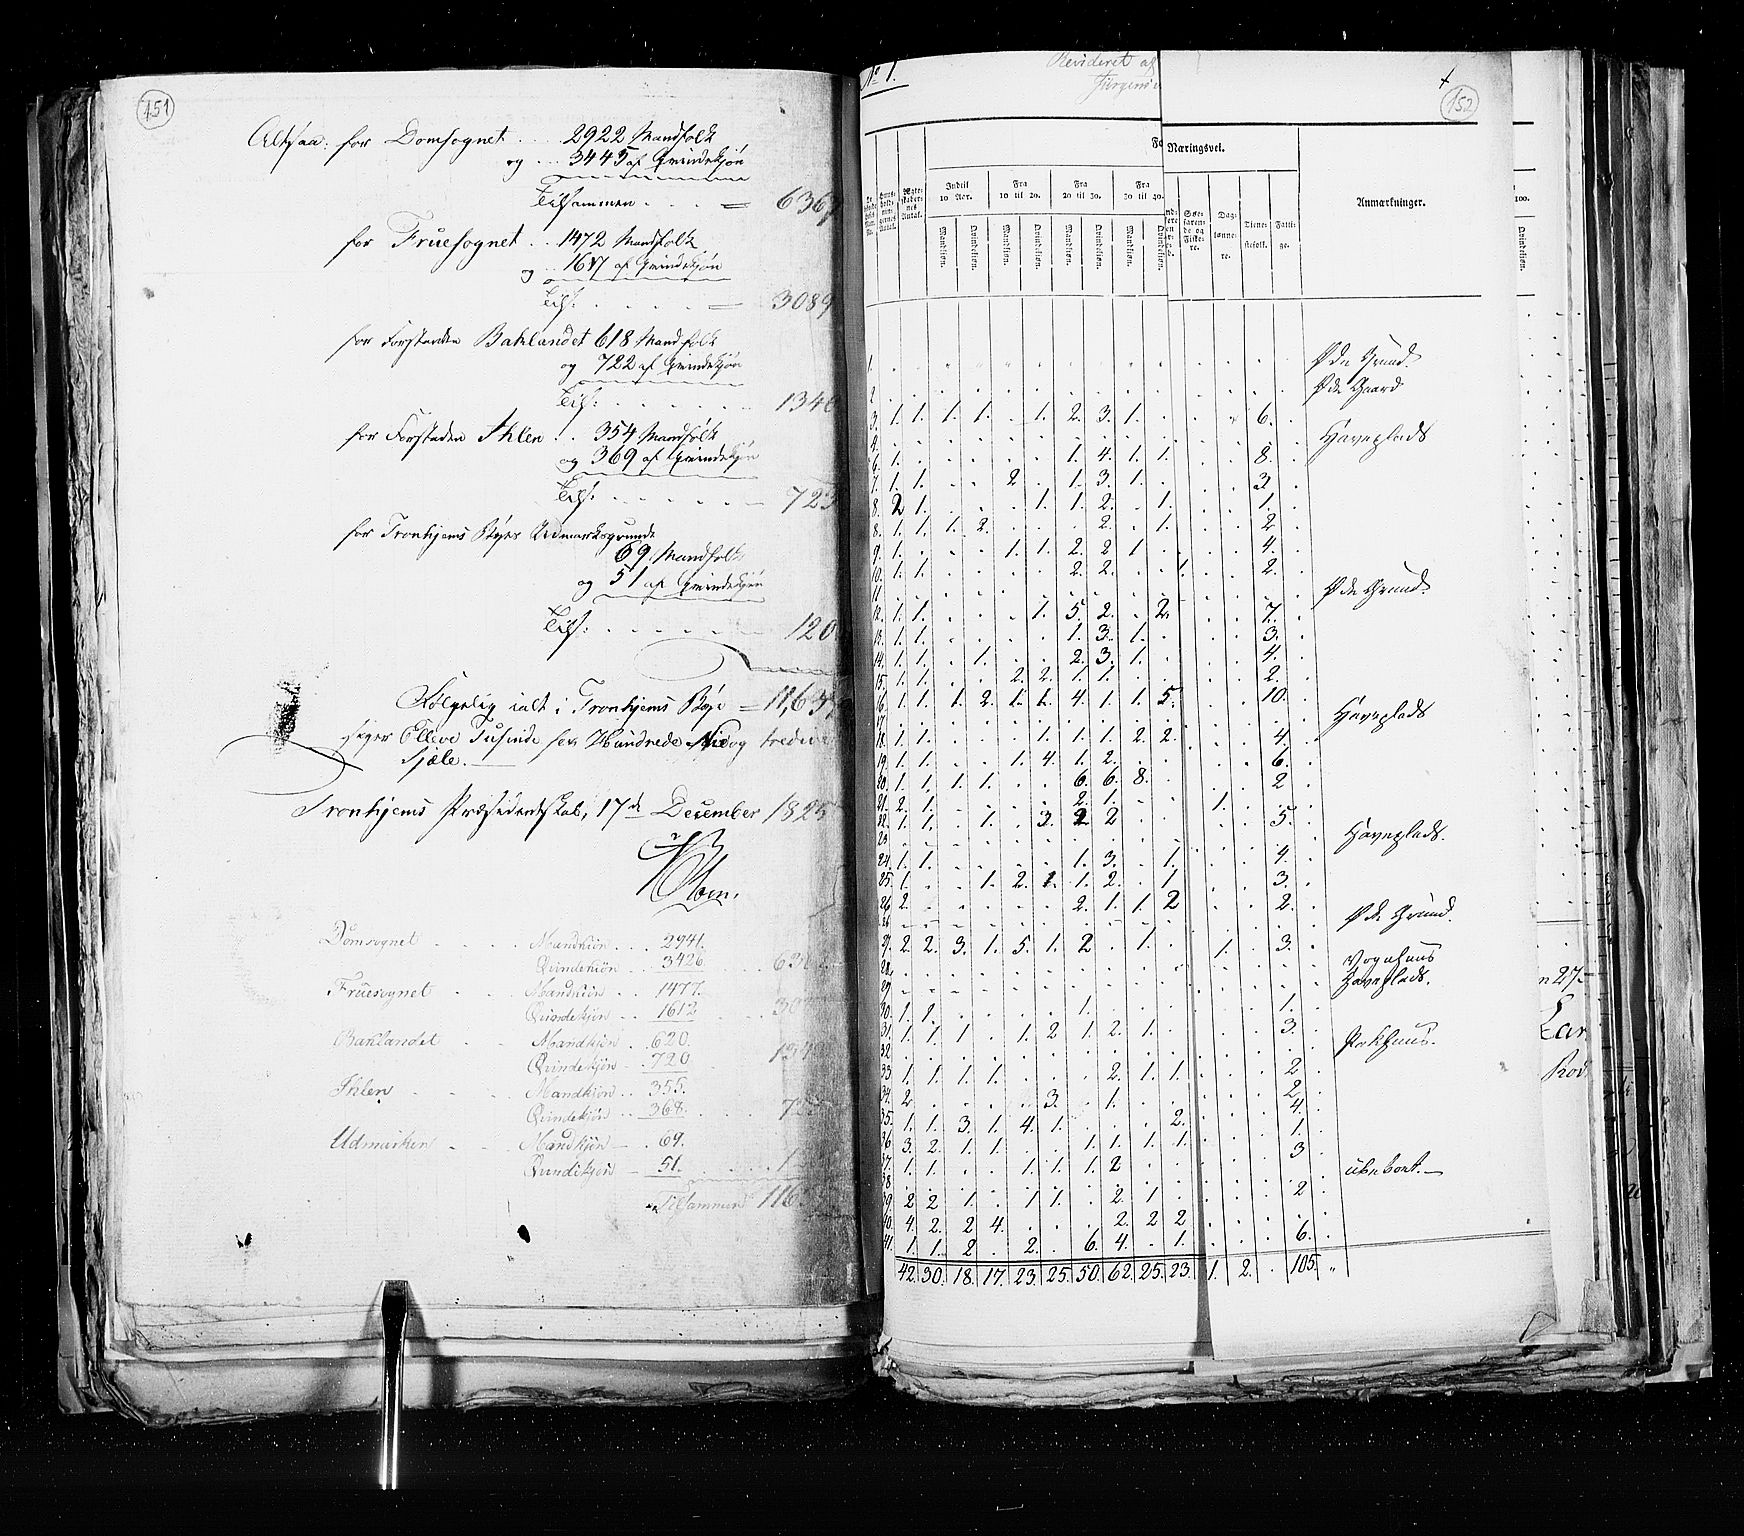 151
Altsaa: for Domsognet . . . 2922 Mandfolk
og . . . 3445 af Qvindekjøn
Tilsammen . . . . = 6367
for Fruesognet . . 1472 Mandfolk
og . . 1617 af Qvindekjøn
Tils: . . . . . . = 3089
for Forstaden Baklandet 618 Mandfolk
og 722 af Qvindekjøn
Tils: . . . . . . 1340
for Forstaden Ihlen . . 354 Mandfolk
og 369 af Qvindekjøn
Tils: . . . . . . 723
for Tronhjems Byes Udmarksgrunde
69 Mandfolk
og 51 af Qvindekjøn
Tils: . . . . . . 120
Følgelig ialt i Tronhjems Bye = 11,639
siger Elleve Tusinde sex Hundrede Nie og tredive
Sjæle.
Tronhjems Præsidentskab, 17de December 1825
Domsognet . . . Mandkiøn . . . 2941.
Qvindekiøn . . 3426.
Fruesognet . . Mandkiøn . . 1477.
Qvindekjøn . . 1612
Baklandet . . Mandkjøn . . 620.
Qvindekjøn . . 720
Ihlen . . . Mandkjøn . . 355.
Qvindekjøn . . 368.
Udmarken . . Mandkjøn — 69.
Qvindekjøn — 51.
Tilsammen 116
No 1.
Revideret af
152
Næringsvei.
Indtil 10 Aar. Fra 10 til 20. Fra 20 til 30. Fra 30 til 40.
Mandkiøn. Qvindekiøn. Mandkiøn. Qvindekiøn. Mandkiøn. Qvindekiøn. Mandkiøn. Qvindekiøn.
Søefarende og Fiskere. Daglønnere. Tienestefolk. Fattige. Anmærkninger.
100.
Qvindekiøn.
1. Øde Grund.
2. Øde Gaard
3. 1. 1. 1. 1. . 1. 2. 3. 1. . . . . 6.
4. Haveplads
6. 1. . . . . . 1. 4. 1. 1. . . . 8.
7. 1. 1. . . 2. . 1. 3. 1. . . . . 3.
8. 2 1. . . . 1. 1. 2. . 1. . . . 1.
8. 1. 1. 1. 2. . . . 2. . 1. . . . 2.
9. 1. . . . 1. 1. 2. 2 1 . . . . 4.
10. 1. 1. . . . . 2. 2. . . 1. . . 2.
11. Øde Grund.
12. 1. 1. . . . 1. 5. 2. . 2. . . . 7.
13. 1. 1. . . . . 1. 3. 1. . . . . 3.
14. 1. 1. . 1. . . 2. 3. 1. . . . . 4.
15. 1. 1. . . 2. 2. 1. 1. . . . . . 2.
16. 1. 1. 1. 2. 1. 1. 4. 1. 1. 5. . . . 10.
17. Haveplads
18. 1. 1. . . . 1. 1. 1. 2. 2. . . . 4.
19. 1. 1. . . 1. 4. 1. 2. . . . . . 6.
20. 1. 1. 1. 1. . . 6. 6. 8. . . . . 2
21. 2. 1. . . . . 2. 1. . . . 1.
22. 1. 1. . 1. . 3. 2 2 . . . . . 5.
23. Haveplads.
24. 1. 1. . . . . 1. 3. . 1. . . . 4.
25. 1. . . 1. 2. 1. 1. 2. . 1. . . . 3.
26 2. . . . . . 2. 1. 1. 2 . . . 2.
26 Øde Grund.
27. 2. 2. 3. 1. 5. 1. 2 . 1. . . 1. . 3.
28. Vognhuus
29. Haveplads.
30. 1. 1. . . . . 1. . . . . . . 1.
31. 1. 1. 1. . 1. 2 1. 2. 1. . . . . 3.
32. Pakhuus.
33. 1. 1. 1. 1. . . . 2. 1. 1. . . . 2
34. 2. . . . . 3. . 1. . . . . . 2.
35. 1. 1. 3. 1. 4. 1. . . . 2. . . . 4.
36 3. 2. 1. 1. . . 1. 1. 1. 1. . . . 1.
37. 1. 1. . . 1. 1. 1. 2 . . . . . 3
38. ubeboet.—
39. 2 2 1. . 1. 1. . 2. 1. . . . . 2
40. 4. 2. 2 4. . . . 2. 2 2
41. 1. 1. 2 . 2. . 6. 4. . 1. . . . 6.
42. 30. 18. 17. 23. 25. 50. 62. 25. 23. 1. 2. . 105. „